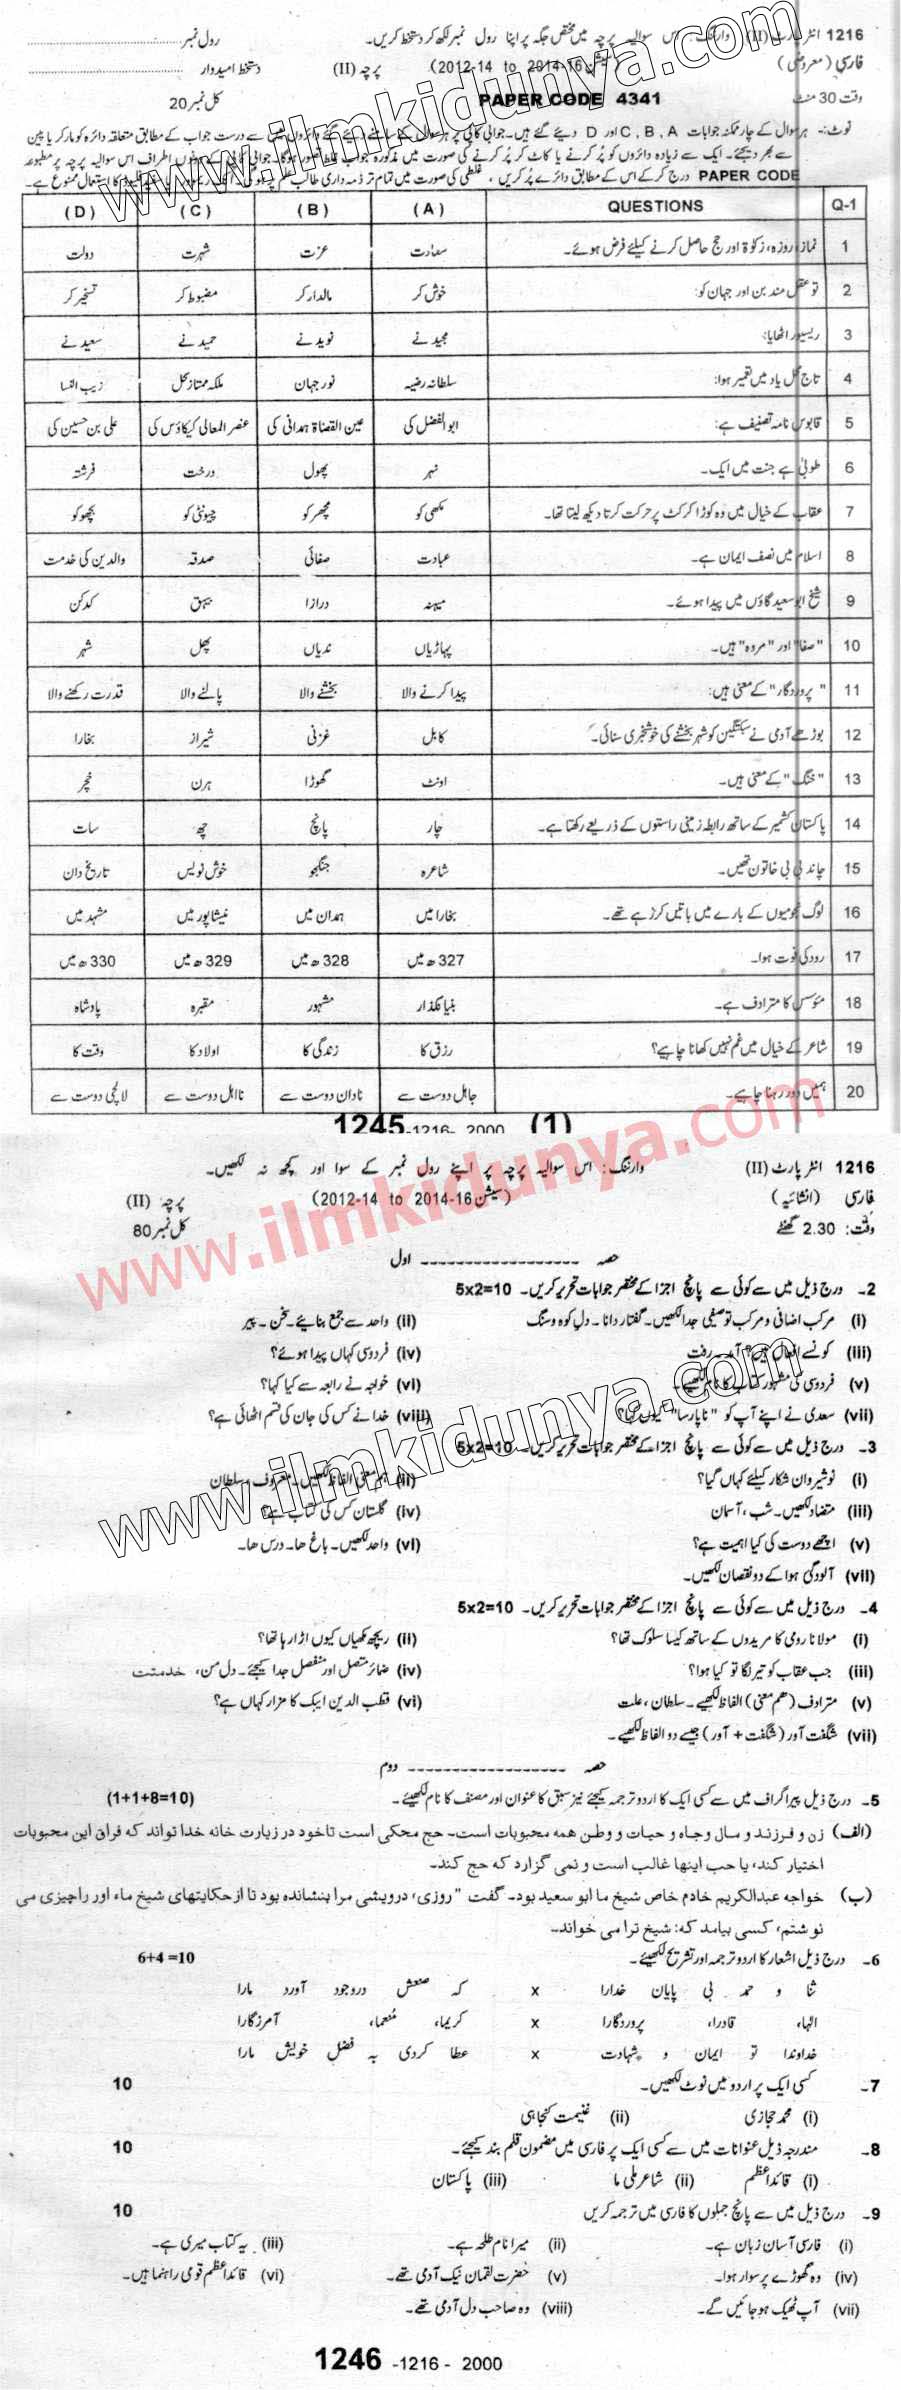 1216 انٹر پارٹ (II) وارننگ: اس سوالیہ پرچہ میں مختص جگہ پر اپنا رول نمبر لکھ کر دستخط کریں۔ رول نمبر
فارسی (معروضی) (سیشن 2012-14 to 2014-16) پرچہ (II) دستخط امیدوار
وقت 30 منٹ PAPER CODE 4341 کل نمبر 20
نوٹ:- ہر سوال کے چار ممکنہ جوابات A، B، C اور D دیئے گئے ہیں۔ جوابی کاپی پر ہر سوال کے سامنے دیئے گئے دائروں میں سے درست جواب کے مطابق متعلقہ دائرہ کو مارکر یا پین
سے بھر دیجئے۔ ایک سے زیادہ دائروں کو پُر کرنے یا کاٹ کر پُر کرنے کی صورت میں مذکورہ جواب غلط تصور ہوگا۔ جوابی کاپی کے دونوں اطراف اس سوالیہ پرچہ پر مطبوعہ
PAPER CODE درج کر کے اس کے مطابق دائرے پُر کریں، غلطی کی صورت میں تمام تر ذمہ داری طالب علم پر ہوگی۔ کا استعمال ممنوع ہے۔
Q-1 QUESTIONS (A) (B) (C) (D)
1 نماز، روزہ، زکوٰۃ اور حج حاصل کرنے کیلئے فرض ہوئے۔ سعادت عزت شہرت دولت
2 تو عقل مند بن اور جہان کو: خوش کر مالدار کر مضبوط کر تسخیر کر
3 ریسیور اٹھایا: مجید نے نوید نے حمید نے سعید نے
4 تاج محل یاد میں تعمیر ہوا: سلطانہ رضیہ نور جہان ملکہ ممتاز محل زیب النسا
5 قابوس نامہ تصنیف ہے: ابوالفضل کی عین القضاۃ ہمدانی کی عنصر المعالی کیکاؤس کی علی بن حسین کی
6 طوبیٰ ہے جنت میں ایک۔ نہر پھول درخت فرشتہ
7 عقاب کے خیال میں وہ کوڑا کرکٹ پر حرکت کرتا دیکھ لیتا تھا۔ مکھی کو مچھر کو چیونٹی کو بچھو کو
8 اسلام میں نصف ایمان ہے۔ عبادت صفائی صدقہ والدین کی خدمت
9 شیخ ابو سعید گاؤں میں پیدا ہوئے۔ میہنہ درازا بیہق کدکن
10 "صفا" اور "مروہ" ہیں۔ پہاڑیاں ندیاں پھل شہر
11 "پروردگار" کے معنی ہیں: پیدا کرنے والا بخشنے والا پالنے والا قدرت رکھنے والا
12 بوڑھے آدمی نے سبکتگین کو شہر بخشنے کی خوشخبری سنائی۔ کابل غزنی شیراز بخارا
13 "خنگ" کے معنی ہیں۔ اونٹ گھوڑا ہرن خچر
14 پاکستان کشمیر کے ساتھ رابطہ زمینی راستوں کے ذریعے رکھتا ہے۔ چار پانچ چھ سات
15 چاند بی بی خاتون تھیں۔ شاعرہ جنگجو خوش نویس تاریخ دان
16 لوگ نجومیوں کے بارے میں باتیں کر رہے تھے۔ بخارا میں ہمدان میں نیشاپور میں مشہد میں
17 رودکی فوت ہوا۔ 327ھ میں 328ھ میں 329ھ میں 330ھ میں
18 مؤسس کا مترادف ہے۔ بنیانگذار مشہور مقبرہ پادشاہ
19 شاعر کے خیال میں غم نہیں کھانا چاہیے؟ رزق کا زندگی کا اولاد کا وقت کا
20 ہمیں دور رہنا چاہیے۔ جاہل دوست سے نادان دوست سے نااہل دوست سے لالچی دوست سے
1245-1216- 2000 (1)
1216 انٹر پارٹ (II) وارننگ: اس سوالیہ پرچہ پر اپنے رول نمبر کے سوا اور کچھ نہ لکھیں۔
فارسی (انشائیہ) (سیشن 2012-14 to 2014-16) پرچہ (II)
وقت: 2.30 گھنٹے کل نمبر 80
حصہ ------------------ اول
2۔ درج ذیل میں سے کوئی سے پانچ اجزا کے مختصر جوابات تحریر کریں۔ 5x2=10
(i) مرکب اضافی و مرکب توصیفی جدا لکھیں۔ گفتار دانا۔ دل کوہ و سنگ (ii) واحد سے جمع بنائیے۔ سخن۔ پیر
(iii) کونسے افعال ہیں؟ آمد۔ رفت (iv) فردوسی کہاں پیدا ہوئے؟
(v) فردوسی کی مشہور کتاب کا نام لکھیے۔ (vi) خواجہ نے رابعہ سے کیا کہا؟
(vii) سعدی نے اپنے آپ کو "ناپارسا" کیوں کہا؟ (viii) خدا نے کس کی جان کی قسم اٹھائی ہے؟
3۔ درج ذیل میں سے کوئی سے پانچ اجزا کے مختصر جوابات تحریر کریں۔ 5x2=10
(i) نوشیروان شکار کیلئے کہاں گیا؟ (ii) ہم معنی الفاظ لکھیں۔ معروف، سلطان
(iii) متضاد لکھیں۔ شب، آسمان (iv) گلستان کس کی کتاب ہے؟
(v) اچھے دوست کی کیا اہمیت ہے؟ (vi) واحد لکھیں۔ باغ ھا۔ درس ھا۔
(vii) آلودگی ہوا کے دو نقصان لکھیں۔
4۔ درج ذیل میں سے کوئی سے پانچ اجزا کے مختصر جوابات تحریر کریں۔ 5x2=10
(i) مولانا رومی کا مریدوں کے ساتھ کیسا سلوک تھا؟ (ii) ریچھ مکھیاں کیوں اڑا رہا تھا؟
(iii) جب عقاب کو تیر لگا تو کیا ہوا؟ (iv) ضمائر متصل اور منفصل جدا کیجئے۔ دل من، خدمتت
(v) مترادف (ھم معنی) الفاظ لکھیے۔ سلطان، علت (vi) قطب الدین ایبک کا مزار کہاں ہے؟
(vii) شگفت آور (شگفت + آور) جیسے دو الفاظ لکھیے۔
حصہ ------------------ دوم
5۔ درج ذیل پیراگراف میں سے کسی ایک کا اردو ترجمہ کیجئے نیز سبق کا عنوان اور مصنف کا نام لکھیئے۔ (1+1+8=10)
(الف) زن و فرزند و مال و جاہ و حیات و وطن ھمہ محبوبات است۔ حج محکی است تا خود در زیارت خانہ خدا تواند کہ فراق این محبوبات
اختیار کند، یا حب اینھا غالب است و نمی گزارد کہ حج کند۔
(ب) خواجہ عبدالکریم خادم خاص شیخ ما ابو سعید بود۔ گفت "روزی، درویشی مرا بنشاندہ بود تا از حکایتھای شیخ ماء اور راچیزی می
نوشتم، کسی بیامد کہ: شیخ ترا می خواند۔
6۔ درج ذیل اشعار کا اردو ترجمہ اور تشریح لکھیئے۔ 6+4=10
ثنا و حمد بی پایان خدارا x کہ صنعش در وجود آورد مارا
الہا، قادرا، پروردگارا x کریما، مُنعما، آمرزگارا
خداوندا تو ایمان و شہادت x عطا کردی بہ فضل خویش مارا
7۔ کسی ایک پر اردو میں نوٹ لکھیں۔ 10
(i) محمد حجازی (ii) غنیمت کنجاہی
8۔ مندرجہ ذیل عنوانات میں سے کسی ایک پر فارسی میں مضمون قلم بند کیجئے۔ 10
(i) قائد اعظم (ii) شاعر ملی ما (iii) پاکستان
9۔ درج ذیل میں سے پانچ جملوں کا فارسی میں ترجمہ کریں 10
(i) فارسی آسان زبان ہے۔ (ii) میرا نام طلحہ ہے۔ (iii) یہ کتاب میری ہے۔
(iv) وہ گھوڑے پر سوار ہوا۔ (v) حضرت لقمان نیک آدمی تھے۔ (vi) قائد اعظم قومی راہنما ہیں۔
(vii) آپ ٹھیک ہو جائیں گے۔ (viii) وہ صاحب دل آدمی تھے۔
1246 -1216- 2000
www.ilmkidunya.com
www.ilmkidunya.com
www.ilmkidunya.com